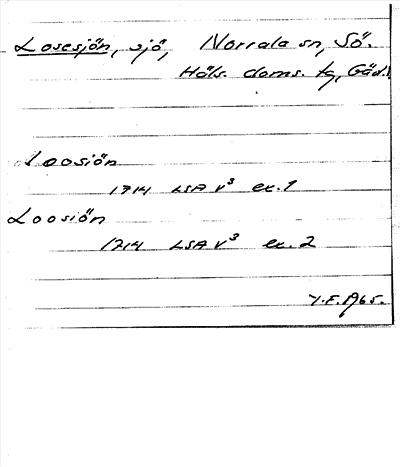 Losesjön, sjö, Norrala sn, Sö.
Häls. doms. tg, Gäd.
Loosiön
1714 LSA V³ ex. 1
Loosiön
1714 LSA V³ ex. 2
Y.F. 1965.